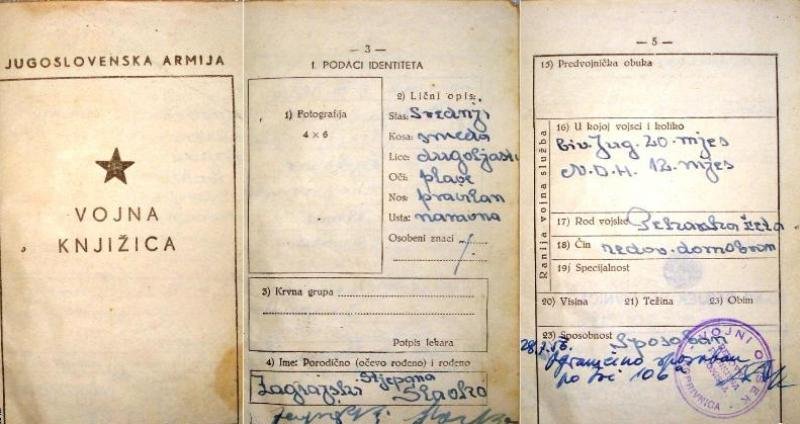 JUGOSLOVENSKA ARMIJA
VOJNA
KNJIŽICA
— 3 —
I. PODACI IDENTITETA
1) Fotografija
4 × 6
2) Lični opis:
Stas: Srednji
Kosa: smeđa
Lice: dugoljasto
Oči: plave
Nos: pravilan
Usta: naravna
Osobeni znaci
3) Krvna grupa
Potpis lekara
4) Ime: Porodično (očevo rođeno) i rođeno
Stjepana
Zagrajski Slavko
— 5 —
15) Predvojnička obuka
Ranija vojna služba
16) U kojoj vojsci i koliko
biv. Jug. 20. mjes
N.D.H. 12. mjes
17) Rod vojske Pekarska četa
18) Čin redov. domobran
19) Specijalnost
20) Visina 21) Težina 23) Obim
23) Sposobnost Sposoban
ograničeno sposoban
po 106a
VOJNI